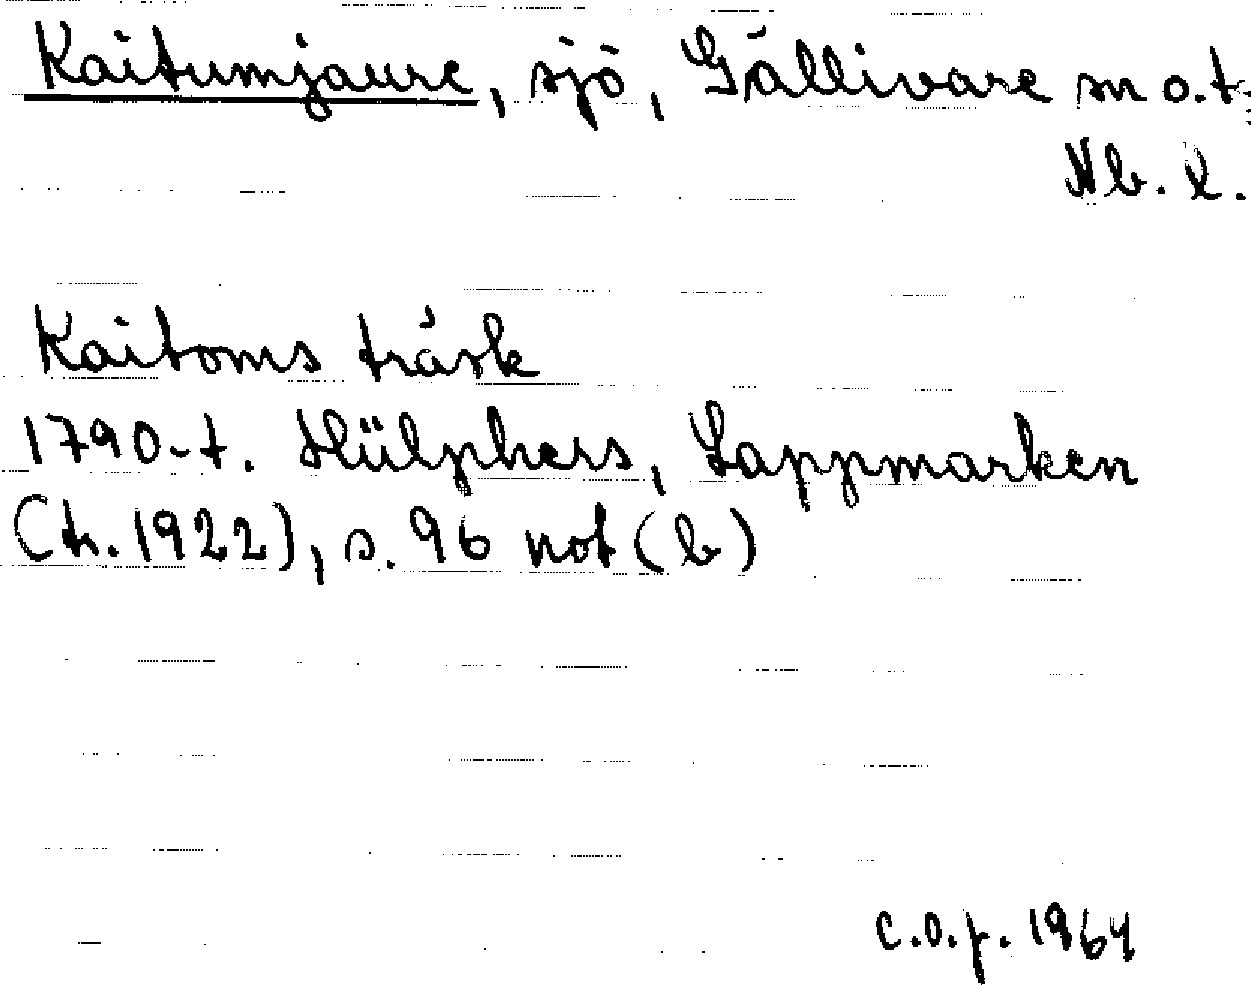 Kaitumjaure, sjö, Gällivare sn o.t.
Nb. l.
Kaitoms träsk
1790-t. Hülphers, Lappmarken
(tr. 1922), s. 96 not (b)
C.O.F. 1964